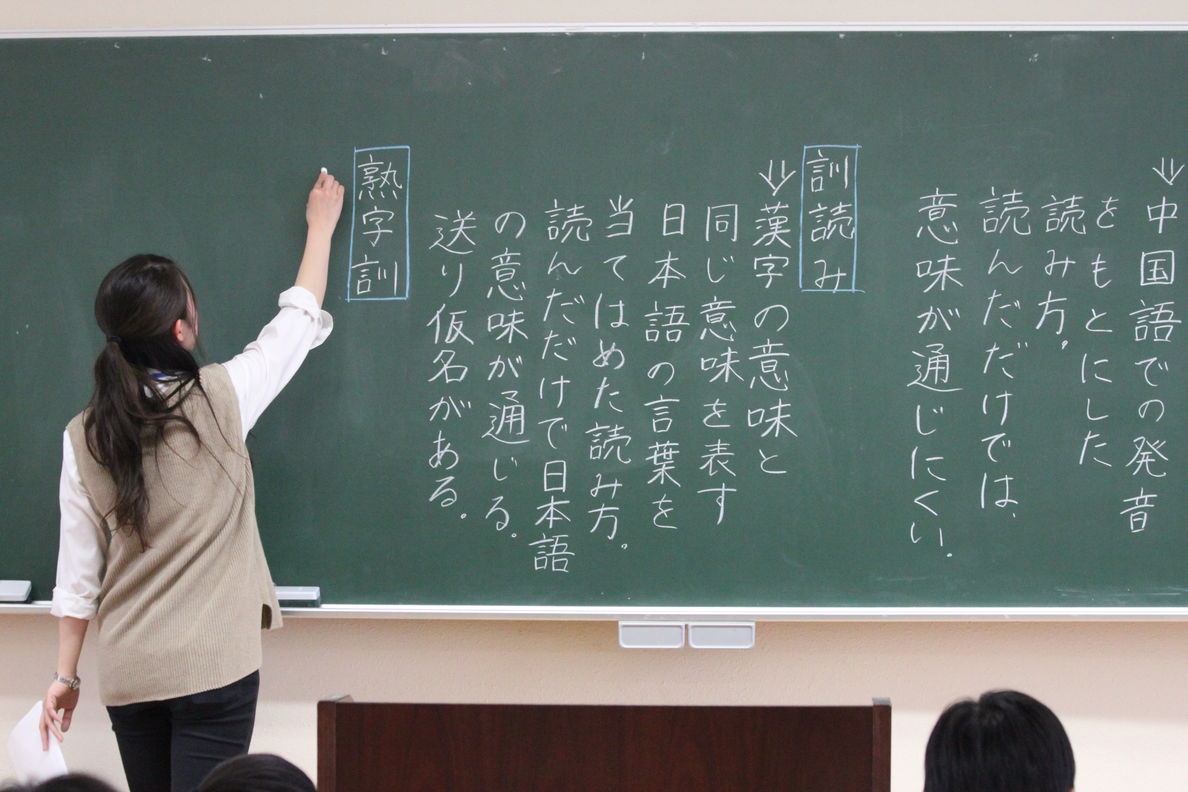 ⇓中国語での発音
をもとにした
読み方。
読んだだけでは、
意味が通じにくい。
訓読み
⇓漢字の意味と
同じ意味を表す
日本語の言葉を
当てはめた読み方。
読んだだけで日本語
の意味が通じる。
送り仮名がある。
熟字訓